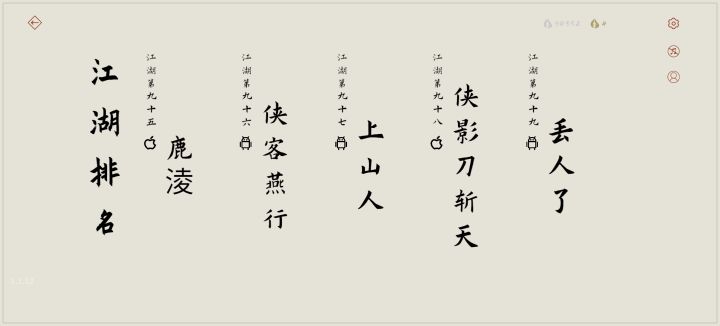 江湖排名
江湖第九十五
鹿淩
江湖第九十六
侠客燕行
江湖第九十七
上山人
江湖第九十八
侠影刀斩天
江湖第九十九
丢人了